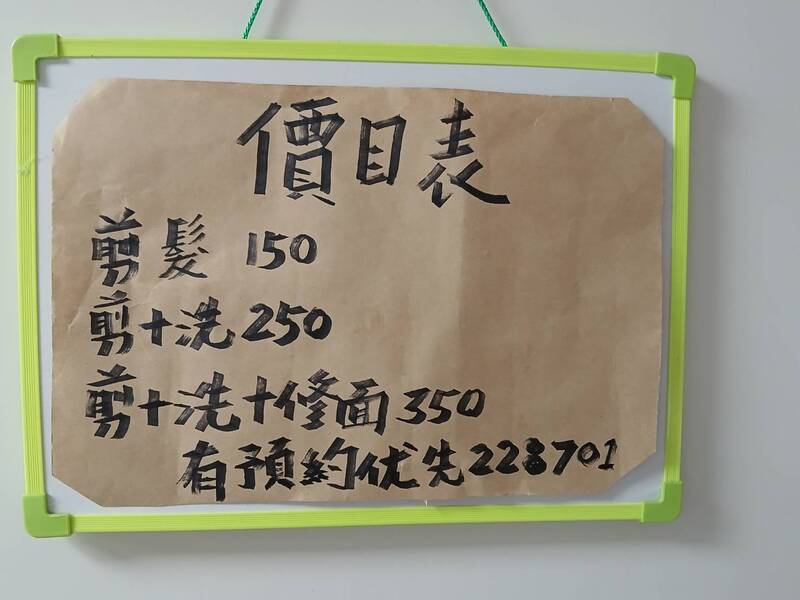 價目表
剪髮 150
剪+洗 250
剪+洗+修面 350
有預約优先 228701